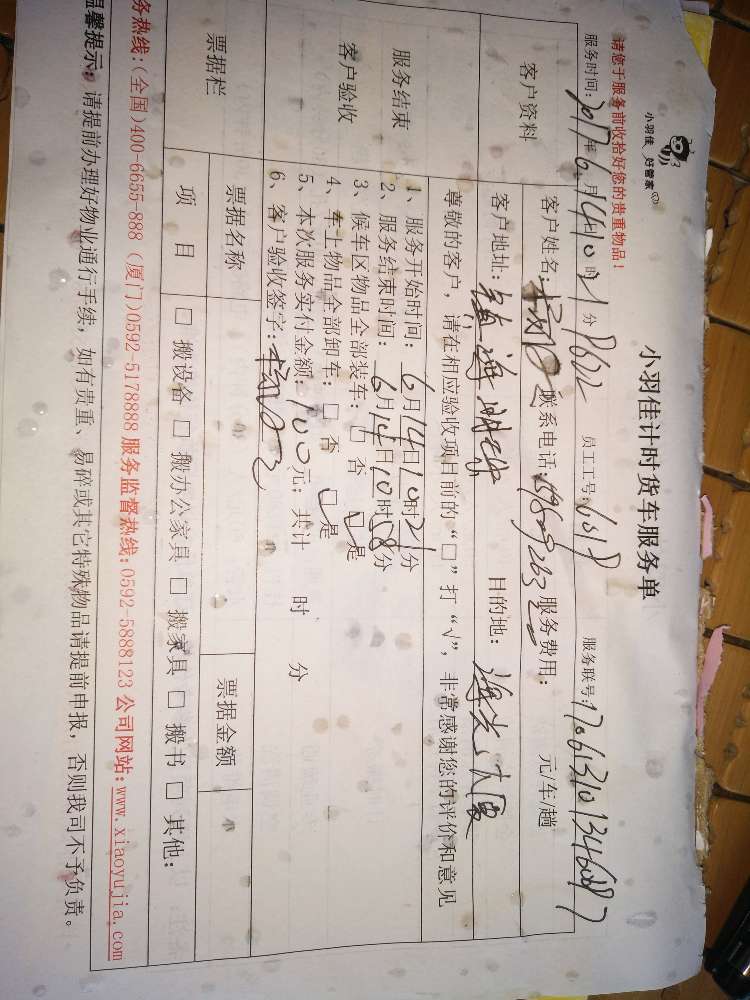 小羽佳 好管家
小羽佳计时货车服务单
请您于服务前收拾好您的贵重物品！
服务时间：2017年6月14日10时21分 员工工号： 服务联号：
客户资料 客户姓名： 联系电话： 服务费用： 元/车/趟
客户地址： 目的地：
服务结束
客户验收
尊敬的客户，请在相应验收项目前的“□”打“√”，非常感谢您的评价和意见
1、服务开始时间：6月14日10时21分
2、服务结束时间：6月14日10时58分
3、候车区物品全部装车：□否 □是
4、车上物品全部卸车：□否 □是
5、本次服务实付金额：100元；共计 时 分
6、客户验收签字：
票据栏 票据名称 票据金额 小
项 目 □搬设备 □搬办公家具 □搬家具 □搬书 □其他：
务热线：(全国)400-6655-888 (厦门)0592-5178888 服务监督热线：0592-5888123 公司网站：www.xiaoyujia.com
温馨提示：请提前办理好物业通行手续，如有贵重、易碎或其它特殊物品请提前申报，否则我司不予负责。